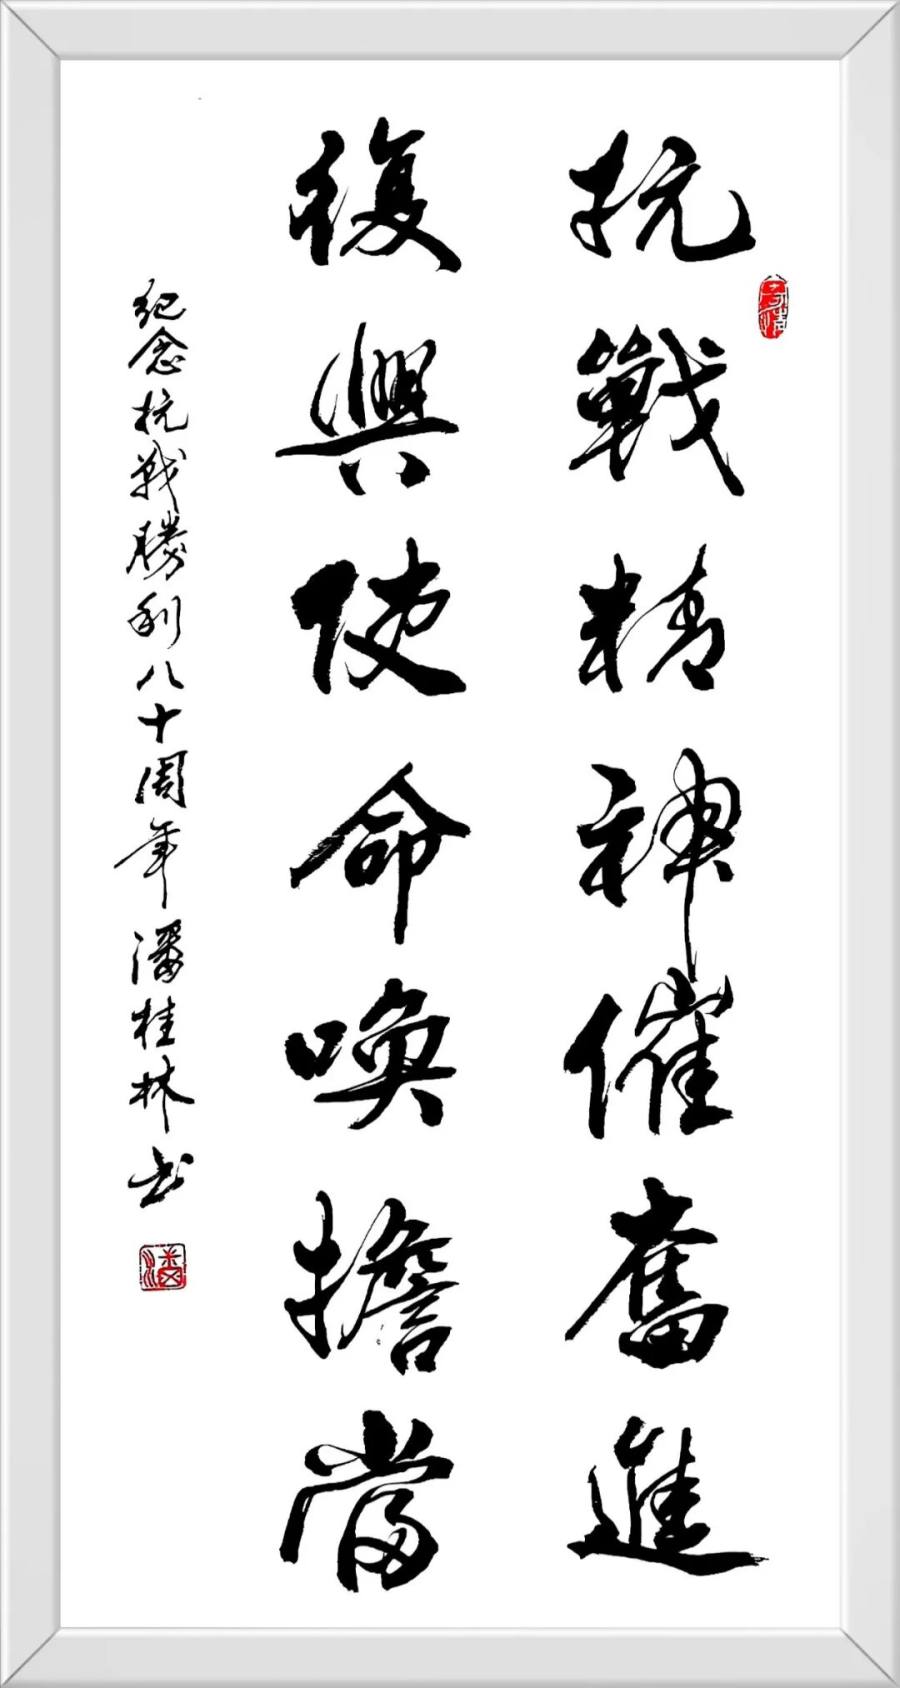 抗戰精神催奮進
復興使命喚擔當
紀念抗戰勝利八十周年潘桂林书
潘